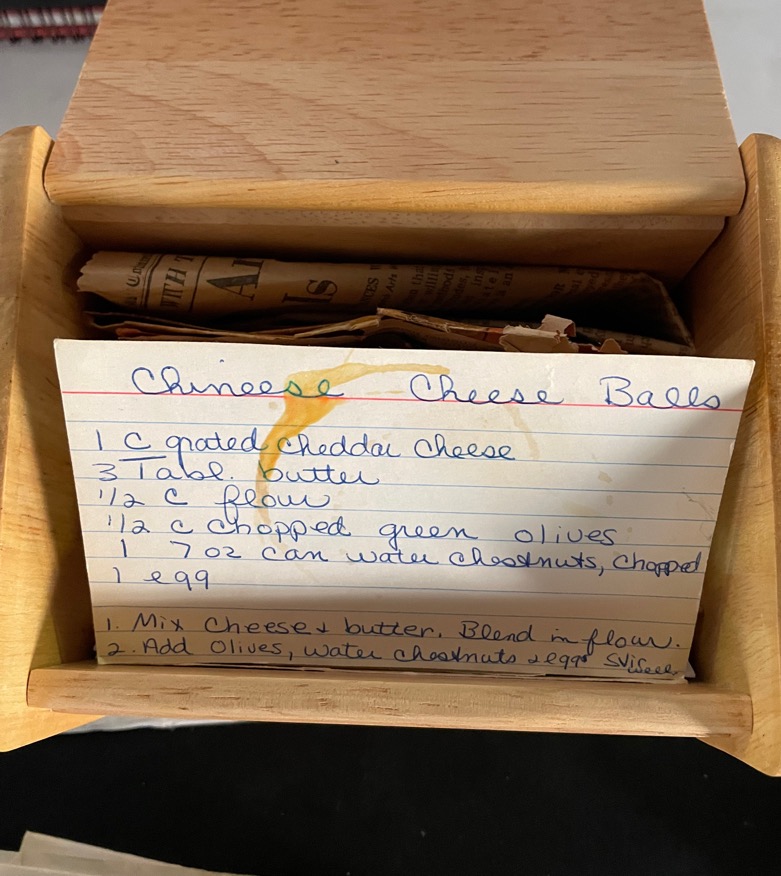 WITH
Al
ls
Chineese Cheese Balls
1 C grated cheddar cheese
3 Tabl. butter
1/2 C flour
1/2 c chopped green olives
1 7 oz can water chestnuts, chopped
1 egg
1. Mix cheese & butter. Blend in flour.
2. Add olives, water chestnuts & egg
well